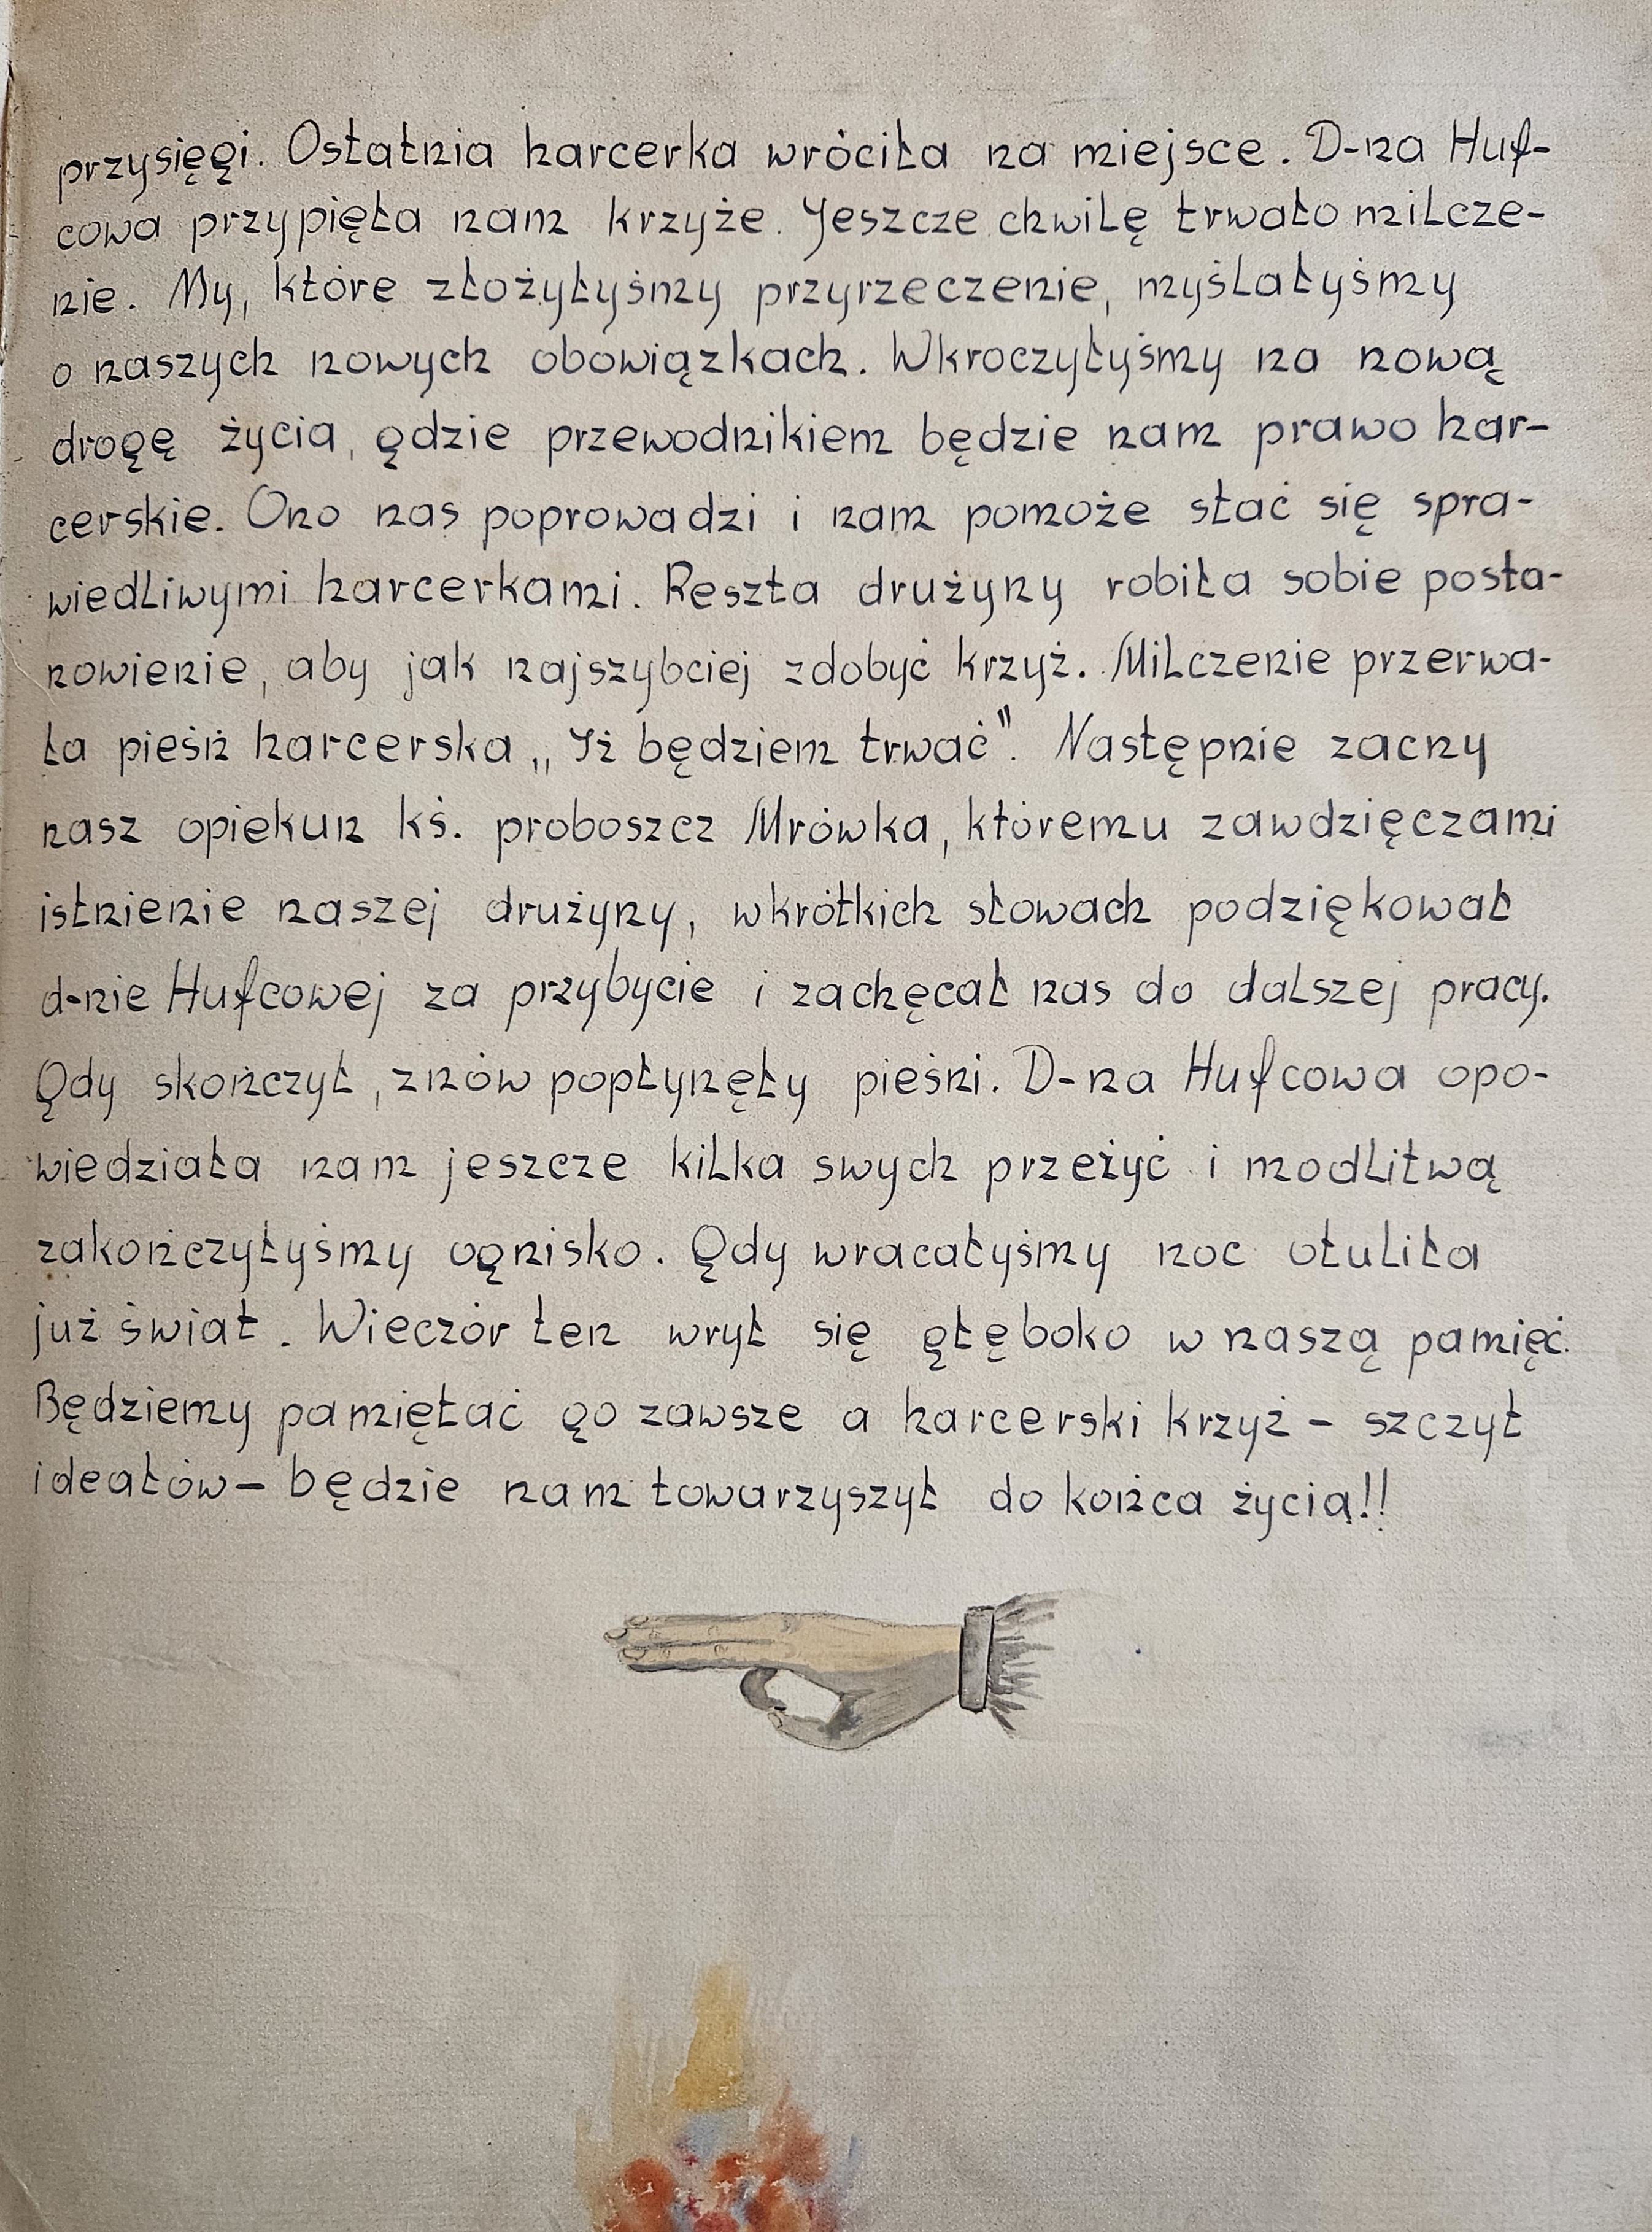 przysięgi. Ostatnia harcerka wróciła na miejsce. D-na Huf-
cowa przypięła nam krzyże. Jeszcze chwilę trwało milcze-
nie. My, które złożyłyśmy przyrzeczenie, myślałyśmy
o naszych nowych obowiązkach. Wkroczyłyśmy na nową
drogę życia, gdzie przewodnikiem będzie nam prawo har-
cerskie. Ono nas poprowadzi i nam pomoże stać się spra-
wiedliwymi harcerkami. Reszta drużyny robiła sobie posta-
nowienie, aby jak najszybciej zdobyć krzyż. Milczenie przerwa-
ła pieśń harcerska „Iż będziem trwać". Następnie zacny
nasz opiekun kś. proboszcz Mrówka, któremu zawdzięczami
istnienie naszej drużyny, wkrótkich słowach podziękował
d-nie Hufcowej za przybycie i zachęcał nas do dalszej pracy.
Gdy skończył, znów popłynęły pieśni. D-na Hufcowa opo-
wiedziała nam jeszcze kilka swych przeżyć i modlitwą
zakończyłyśmy ognisko. Gdy wracałyśmy noc otuliła
już świat. Wieczór ten wrył się głęboko w naszą pamięć.
Będziemy pamiętać go zawsze a harcerski krzyż – szczyt
ideałów – będzie nam towarzyszył do końca życia!!